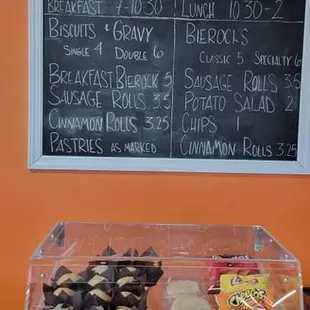 BREAKFAST 7-10:30
BISCUITS & GRAVY
SINGLE 4 DOUBLE 6
BREAKFAST BIEROCK 5
SAUSAGE ROLLS 3.5
CINNAMON ROLLS 3.25
PASTRIES AS MARKED
LUNCH 10:30-2
BIEROCKS
CLASSIC 5 SPECIALTY 6
SAUSAGE ROLLS 3.5
POTATO SALAD 2
CHIPS 1
CINNAMON ROLLS 3.25
Cheetos